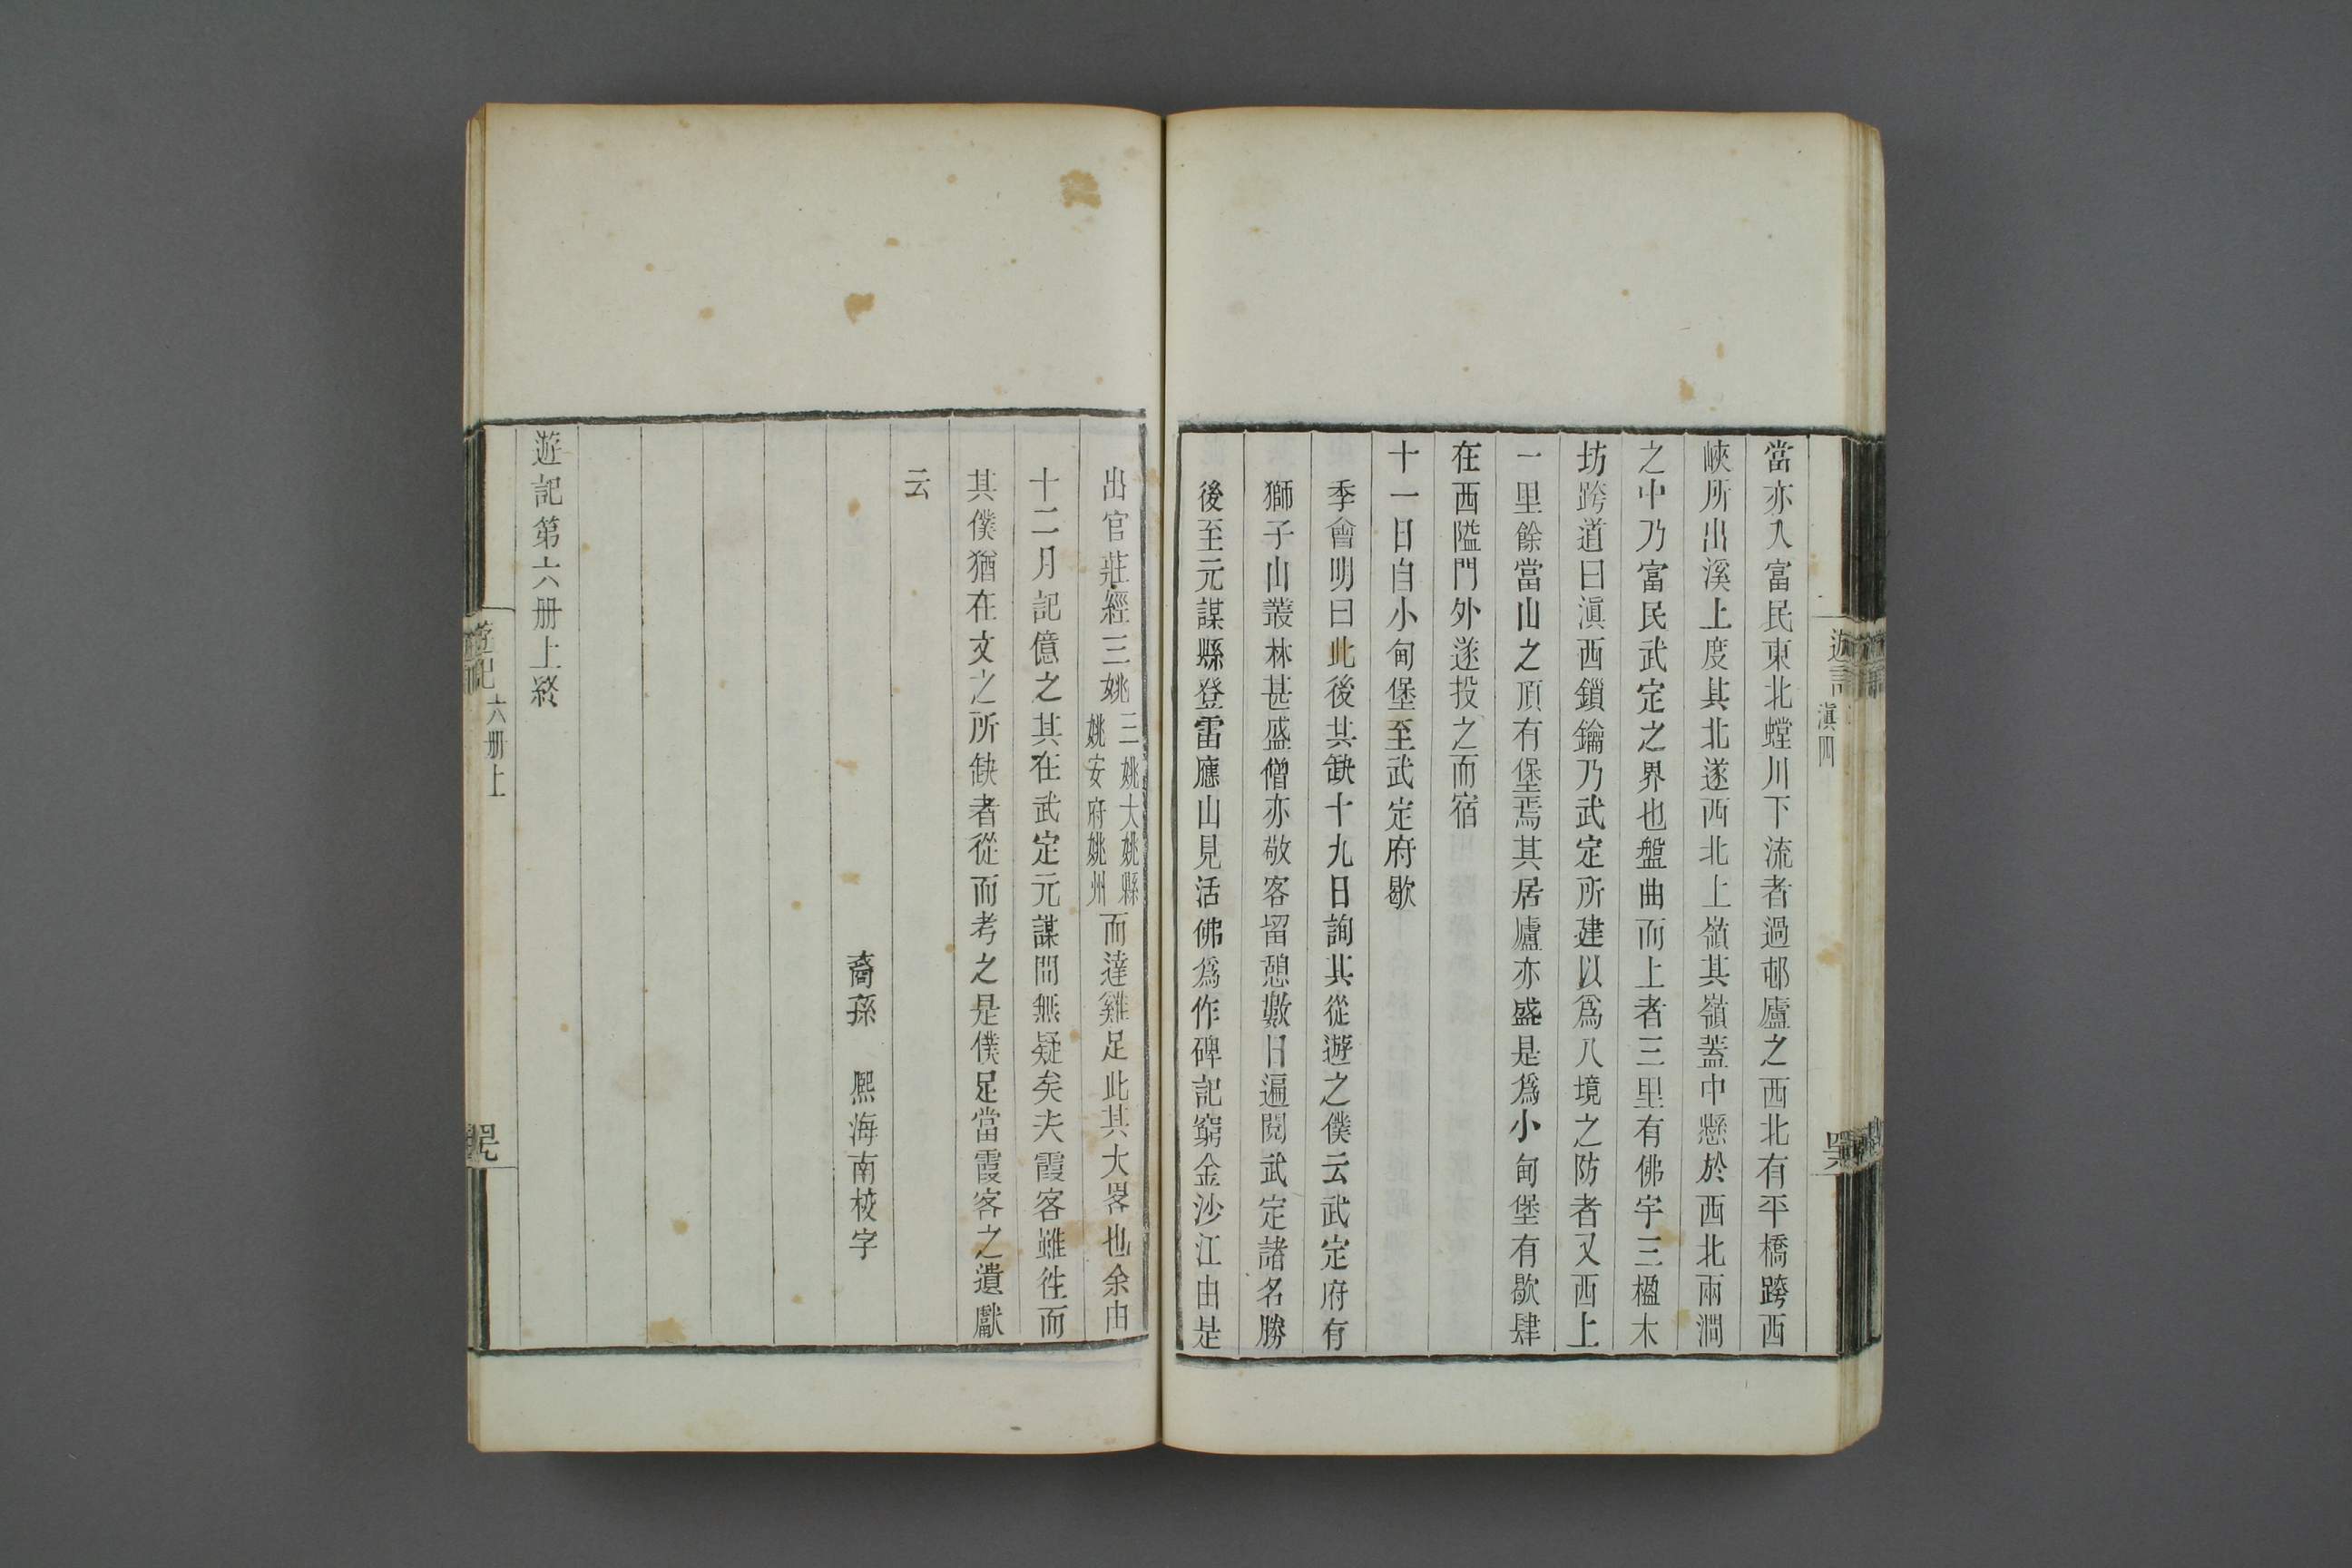 當亦入富民東北螳川下流者過邨廬之西北有平橋跨西
峽所出溪上度其北遂西北上嶺其嶺蓋中懸於西北兩澗
之中乃富民武定之界也盤曲而上者三里有佛宇三楹木
坊跨道曰滇西鎖鑰乃武定所建以爲入境之防者又西上
一里餘當山之頂有堡焉其居廬亦盛是爲小甸堡有歇肆
在西隘門外遂投之而宿
十一日自小甸堡至武定府歇
季會明曰此後共缺十九日詢其從遊之僕云武定府有
獅子山叢林甚盛僧亦敬客留憩數日遍閱武定諸名勝
後至元謀縣登雷應山見活佛爲作碑記窮金沙江由是
出官莊經三姚三姚大姚縣姚安府姚州而達雞足此其大畧也余由
十二月記億之其在武定元謀間無疑矣夫霞客雖往而
其僕猶在文之所缺者從而考之是僕足當霞客之遺獻
云
裔孫 熙海南校字
遊記第六册上終
遊記 六册上